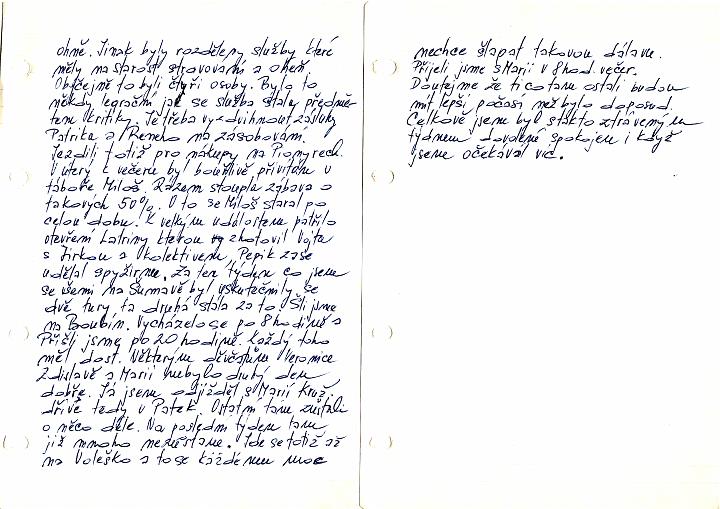 ohně. Jinak byly rozděleny služby které
měly na starost stravování a oheň.
Obyčejně to byli čtyři osoby. Bylo to
někdy legrační jak se služba stala předmě-
tem kritiky. Je třeba vyzdvihnout zásluhy
Patrika a Reneho na zásobování.
Jezdili totiž pro nákupy na Pionýrech.
V úterý k večeru byl bouřlivě přivítán v
táboře Miloš. Rázem stoupla zábava o
takových 50%. O to se Miloš staral po
celou dobu. K velkým událostem patřilo
otevření Latríny kterou zhotovil Vojta
s Jirkou a kolektivem, Pepik zase
udělal spyžírnu. Za ten týden co jsem
se všemi na Šumavě byl uskutečnily se
dvě túry ta druhá stála za to. Šli jsme
na Boubín. Vycházelo se po 8 hodině a
Přišli jsme po 20 hodině. Každý toho
měl dost. Některým děvčatům Veronice
Zdislavě a Marii nebylo druhý den
dobře. Já jsem odjížděl s Marií Kruž.
dříve tedy v Pátek. Ostatní tam zůstali
o něco déle. Na poslední týden tam
již mnoho nezůstane. Jde se totiž až
na Voleško a to se každému moc
nechce šlapat takovou dálavu.
Přijeli jsme s Marií v 8 hod. večer.
Doufejme že ti co tam ostali budou
mít lepší počasí než bylo doposud.
Celkově jsem byl s takto ztráveným
týdnem dovolené spokojen i když
jsem očekával víc.